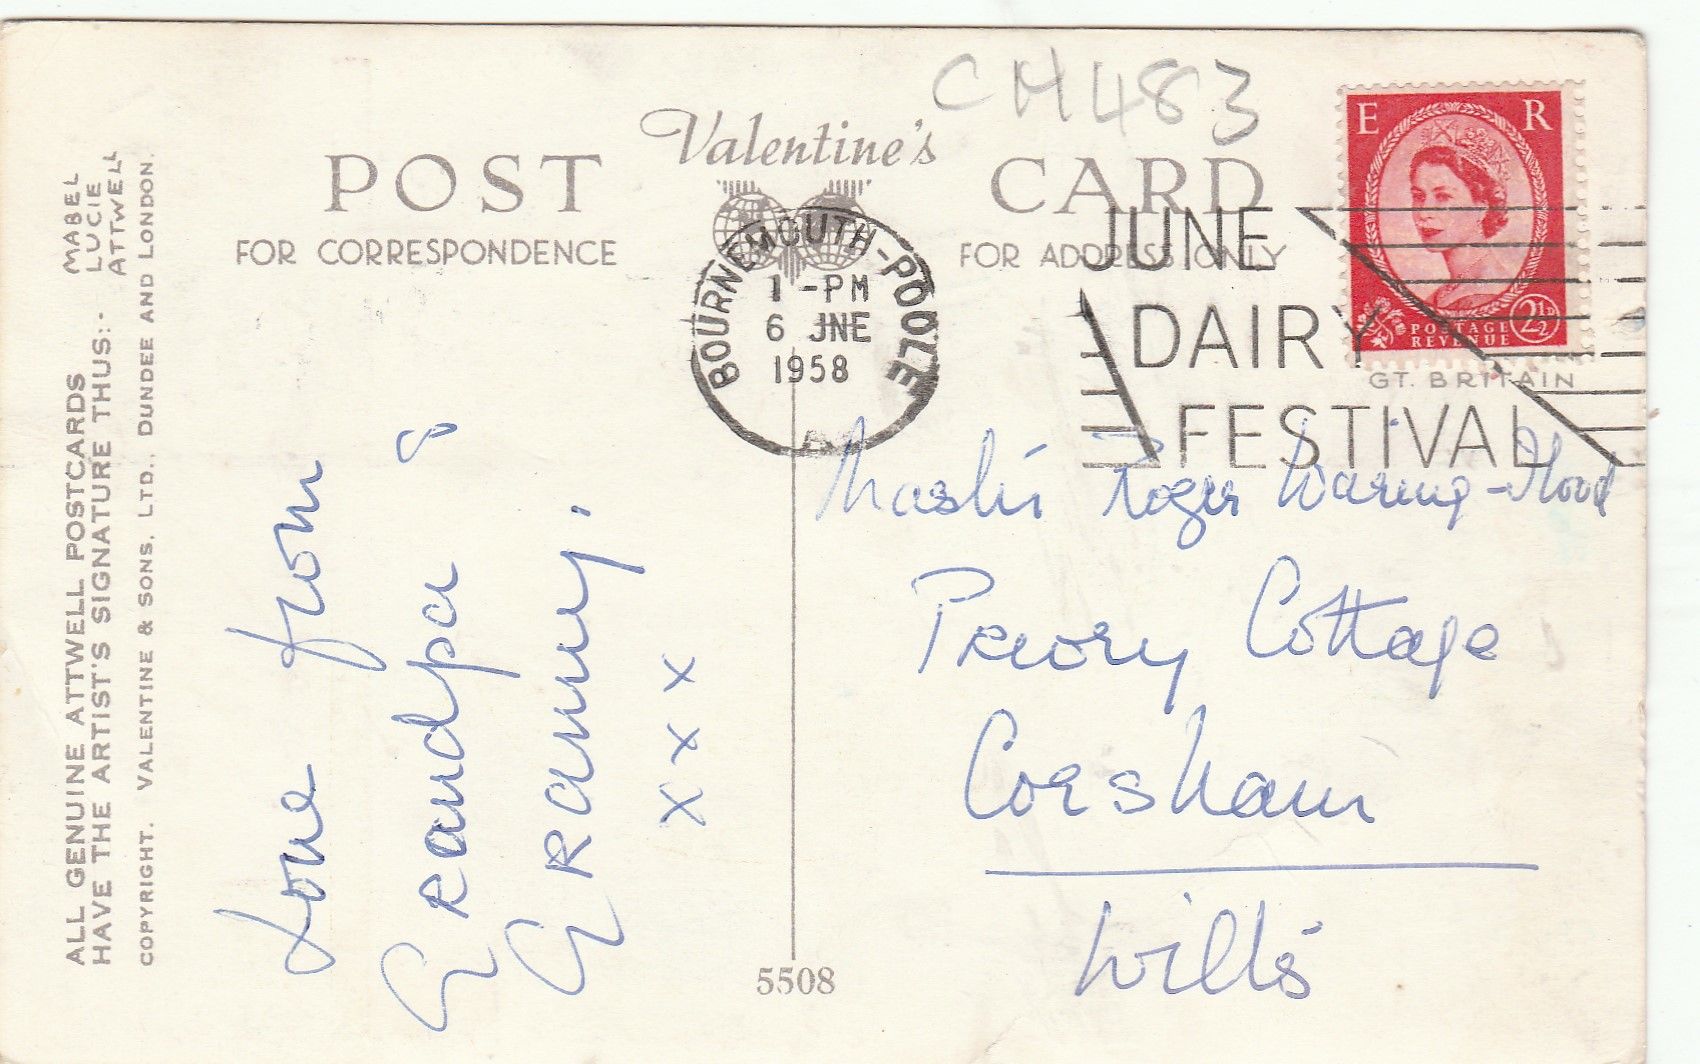 CH483
Valentine's
POST CARD
FOR CORRESPONDENCE
FOR ADDRESS ONLY
E R
POSTAGE
REVENUE
2½D
GT. BRITAIN
BOURNEMOUTH-POOLE
1 -PM
6 JNE
1958
JUNE
DAIRY
FESTIVAL
ALL GENUINE ATTWELL POSTCARDS
HAVE THE ARTIST'S SIGNATURE THUS:-
MABEL
LUCIE
ATTWELL
COPYRIGHT. VALENTINE & SONS, LTD., DUNDEE AND LONDON.
Love from
Grandpa &
Granny.
x x x
Master Roger Waring-
Priory Cottage
Corsham
Wilts
5508